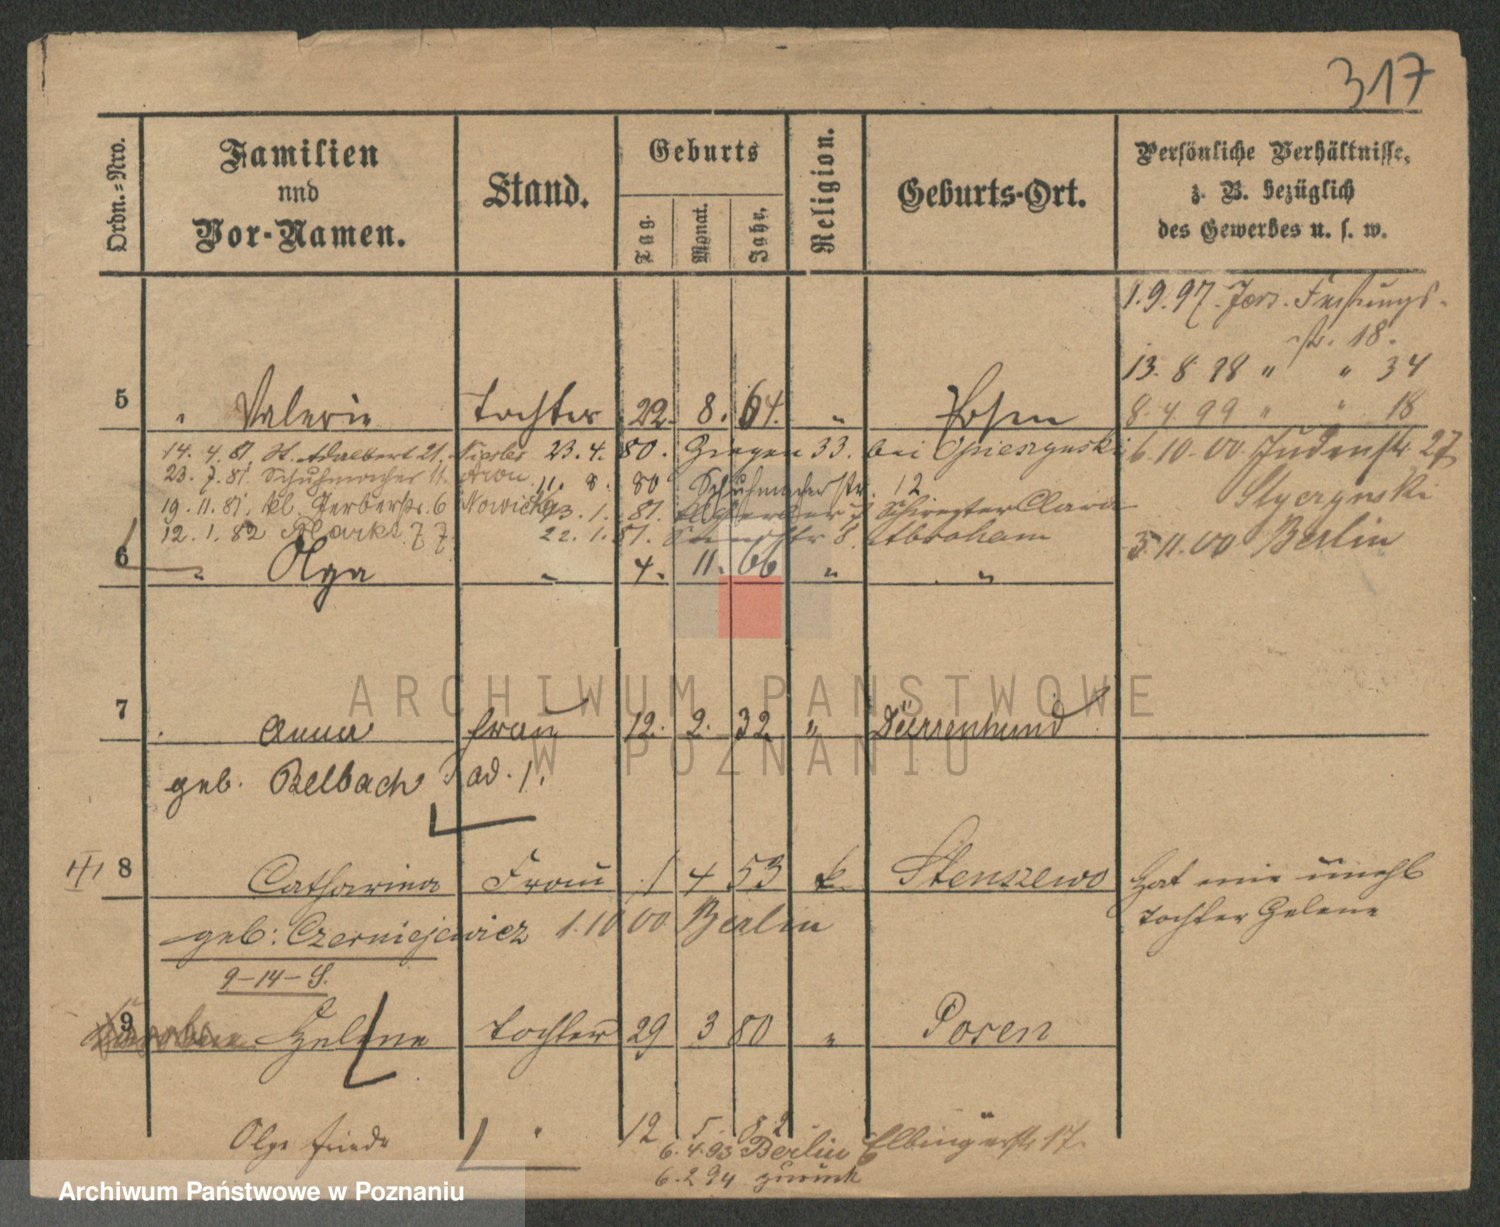 317
Ordn.=Nro.
Familien
und
Vor-Namen.
Stand.
Geburts
Tag.
Monat.
Jahr.
Religion.
Geburts-Ort.
Persönliche Verhältnisse,
z. B. bezüglich
des Gewerbes u. s. w.
1.9.97. Jers. Festungs-
str. 18.
13. 8 98 " " 34
5 " Valerie Tochter 22. 8. 64. " Posen
8.4.99 " " 18
14. 4. 81 St. Adalbert 21. 23. 4. 80. Ziegen 33. bei
6.10.00 Judenstr 27
23. 7. 81 Schuhmacher 11. 11. 8. 80 Schuhmacherstr. 12
19. 11. 81. kl. Gerberstr. 6 Nowicka 23. 1. 81. Clara
12. 1. 82 Markt 77 22. 1. 81. 8. Abraham
3.11.00 Berlin
6 " Olga " 4. 11. 66 " "
7 Anna Frau 12. 2. 32 " Dürrenhund
geb. Belbach ad. 1.
8 Catharina Frau 1 4 53 k. Stenszewo Hat eine unehl
geb: Czerniejewicz 1.10 00 Berlin
Tochter Helene
9-14-S.
9 Helene Tochter 29 3 80 " Posen
Olga Frieda " 12 5. 82
6.4.93 Berlin Elbingerstr 17.
6.2 94 zurück
ARCHIWUM PAŃSTWOWE
W POZNANIU
Archiwum Państwowe w Poznaniu